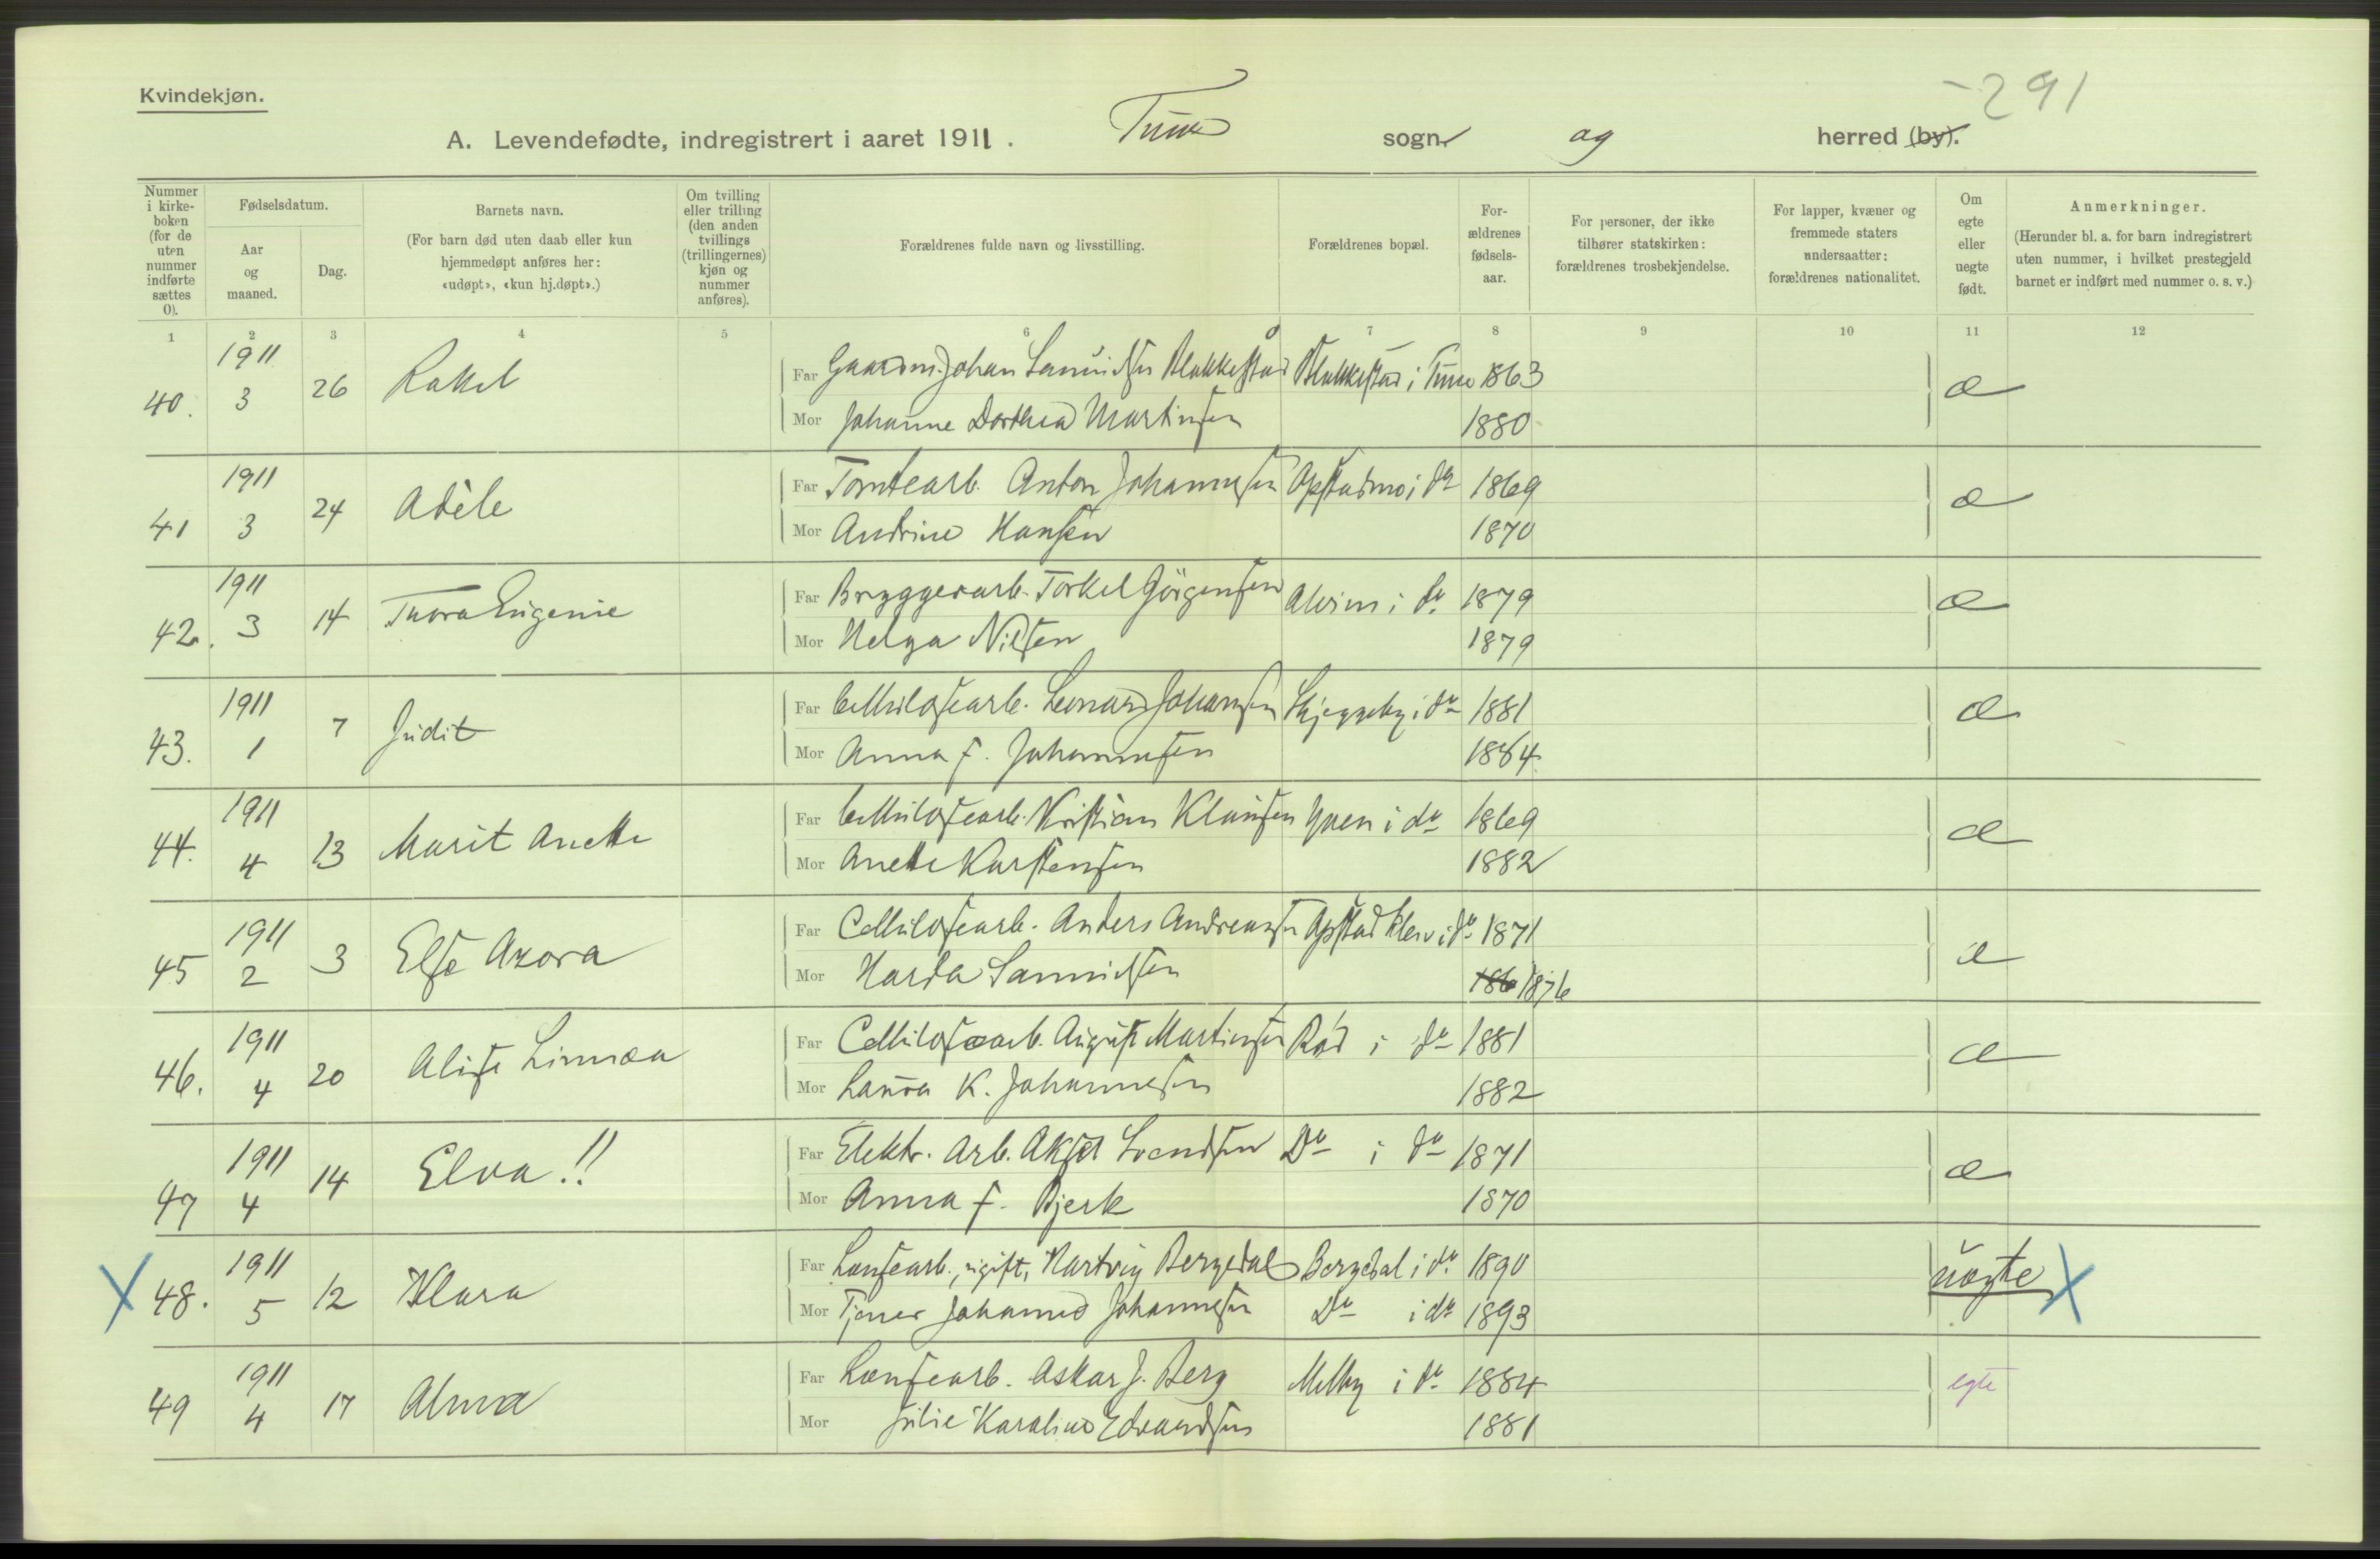 -291
Kvindekjøn.
A. Levendefødte, indregistrert i aaret 1911. Tune sogn og herred (by).
Nummer i kirke-boken (for de uten nummer indførte sættes 0).
Fødselsdatum.
Aar og maaned.
Dag.
Barnets navn.
(For barn død uten daab eller kun hjemmedøpt anføres her: «udøpt», «kun hj.døpt».)
Om tvilling eller trilling (den anden tvillings (trillingernes) kjøn og nummer anføres).
Forældrenes fulde navn og livsstilling.
Forældrenes bopæl.
For-ældrenes fødsels-aar.
For personer, der ikke tilhører statskirken: forældrenes trosbekjendelse.
For lapper, kvæner og fremmede staters undersaatter: forældrenes nationalitet.
Om egte eller uegte født.
Anmerkninger.
(Herunder bl. a. for barn indregistrert uten nummer, i hvilket prestegjeld barnet er indført med nummer o. s. v.)
1 2 3 4 5 6 7 8 9 10 11 12
40. 1911 3 26 Rakel Far Gaardm. Johan Samuelsen Blakkestad Blakkestad i Tune 1863 æ
Mor Johanne Dorthea Martinsen 1880
41 1911 3 24 Adèle Far Tomtearb. Anton Johannesen Opstadmo i do 1869 æ
Mor Andrine Hansen 1870
42. 1911 3 14 Thora Eugenie Far Bryggerarb. Torkel Jörgensen Alvim i do 1879 æ
Mor Helga Nilsen 1879
43. 1911 1 7 Judit Far Cellulosearb. Leonard Johansen Skjeggeby i do 1881 æ
Mor Anna F. Johannesen 1884
44. 1911 4 13 Marit Anette Far Cellulosearb. Kristian Klausen Yven i do 1869 æ
Mor Anette Karstensen 1882
45 1911 2 3 Else Azora Far Cellulosearb. Anders Andreassen Opstad i do 1871 æ
Mor Harda Samuelsen 186 1876
46. 1911 4 20 Alise Linnæa Far Cellulosearb. August Martinsen Rød i do 1881 æ
Mor Laura K. Johannesen 1882
47 1911 4 14 Elva!! Far Elektr. Arb. Aksel Svendsen Do i do 1871 æ
Mor Anna F. Bjerk 1870
X 48. 1911 5 12 Klara Far Lænsearb., ugift, Hartvig Bergedal Bergedal i do 1890 uægte X
Mor Tjener Johanne Johannesen Do i do 1893
49 1911 4 17 Alma Far Lænsearb. Oskar J. Berg Melby i do 1884 egte
Mor Julie Karoline Edvardsen 1881